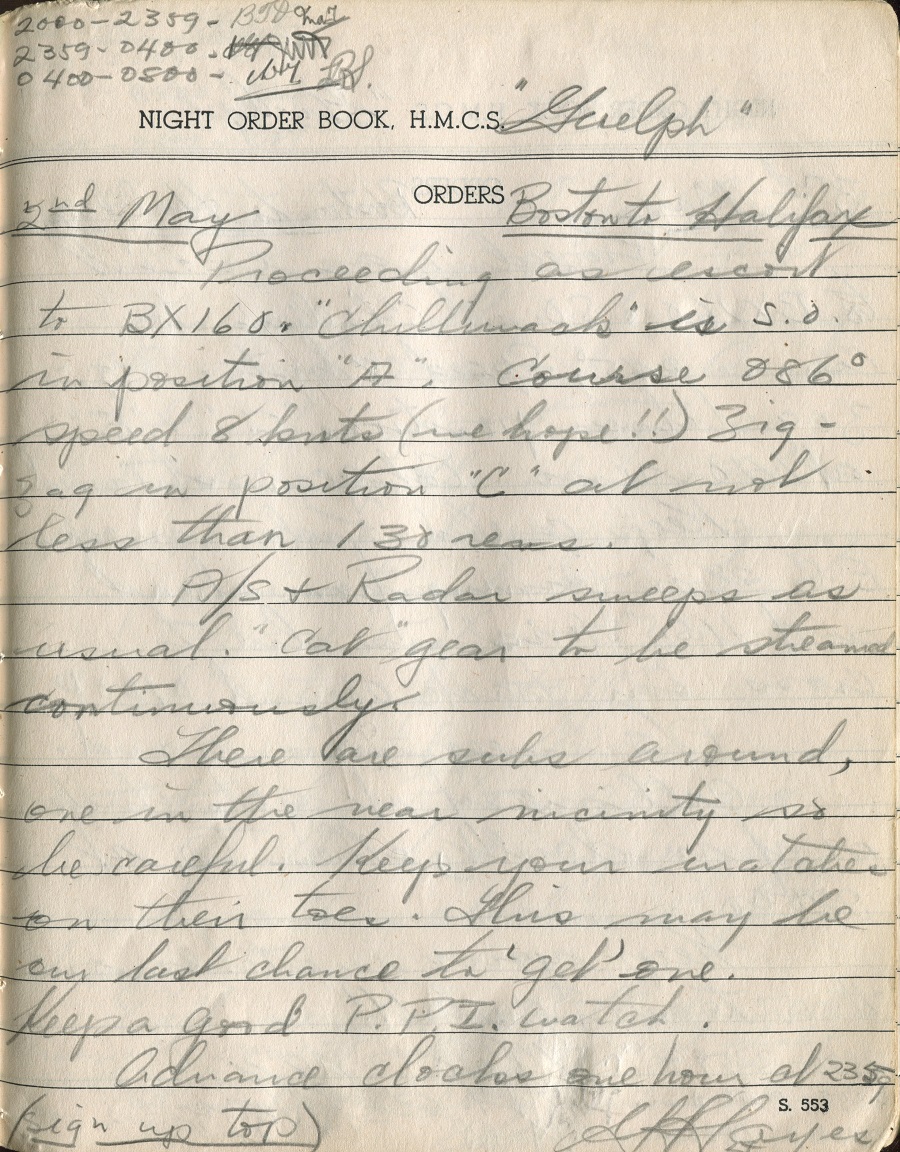 2000-2359-
2359-0400-
0400-0800-
NIGHT ORDER BOOK, H.M.C.S. "Guelph"
ORDERS
2nd May Boston to Halifax
Proceeding as escort
to BX160. "Chilliwack" is S.O.
in position "A". Course 086°
speed 8 knts (we hope!!) Zig-
zag in position "C" at not
less than 130 revs.
A/S + Radar sweeps as
usual. "Cat" gear to be streamed
continuously.
There are subs around,
one in the near vicinity so
be careful. Keep your watches
on their toes. This may be
our last chance to 'get' one.
Keep a good P.P.I. watch.
Advance clocks one hour at 2359
S. 553
(sign up top) Hayes